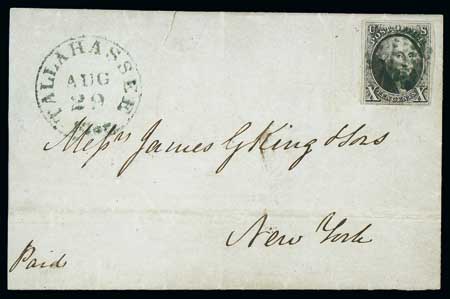 TALLAHASSEE
AUG
29
POST OFFICE
X X
Messrs James G King & Sons
New York
Paid